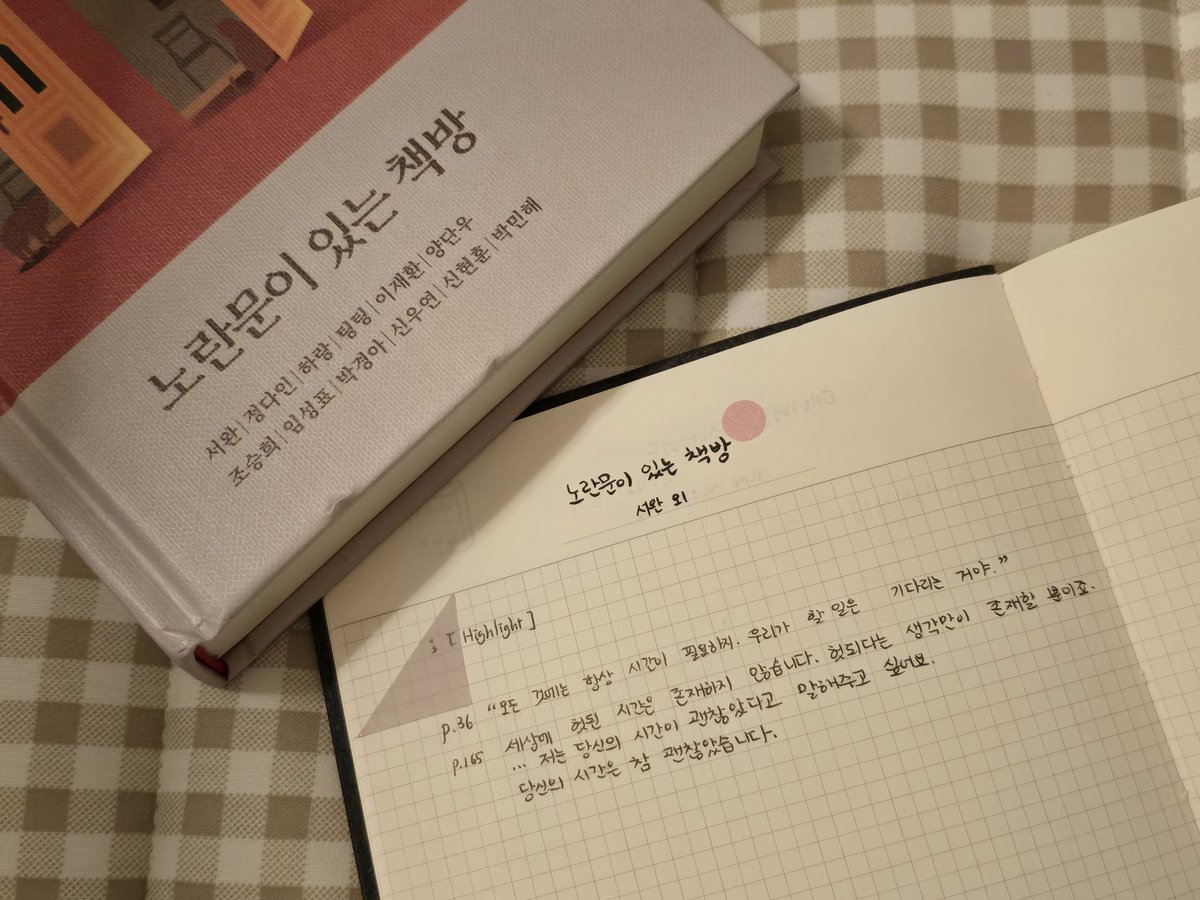 노란문이 있는 책방
서완|정다인|하랑|팅팅|이재환|양단우
조승희|임성표|박경아|신우연|신현훈|박민해
노란문이 있는 책방
서완 외
; [ Highlight ]
p.36 "모든 것에는 항상 시간이 필요하지. 우리가 할 일은 기다리는 거야."
p.165 세상에 헛된 시간은 존재하지 않습니다. 헛되다는 생각만이 존재할 뿐이죠.
... 저는 당신의 시간이 괜찮았다고 말해주고 싶네요.
당신의 시간은 참 괜찮았습니다.